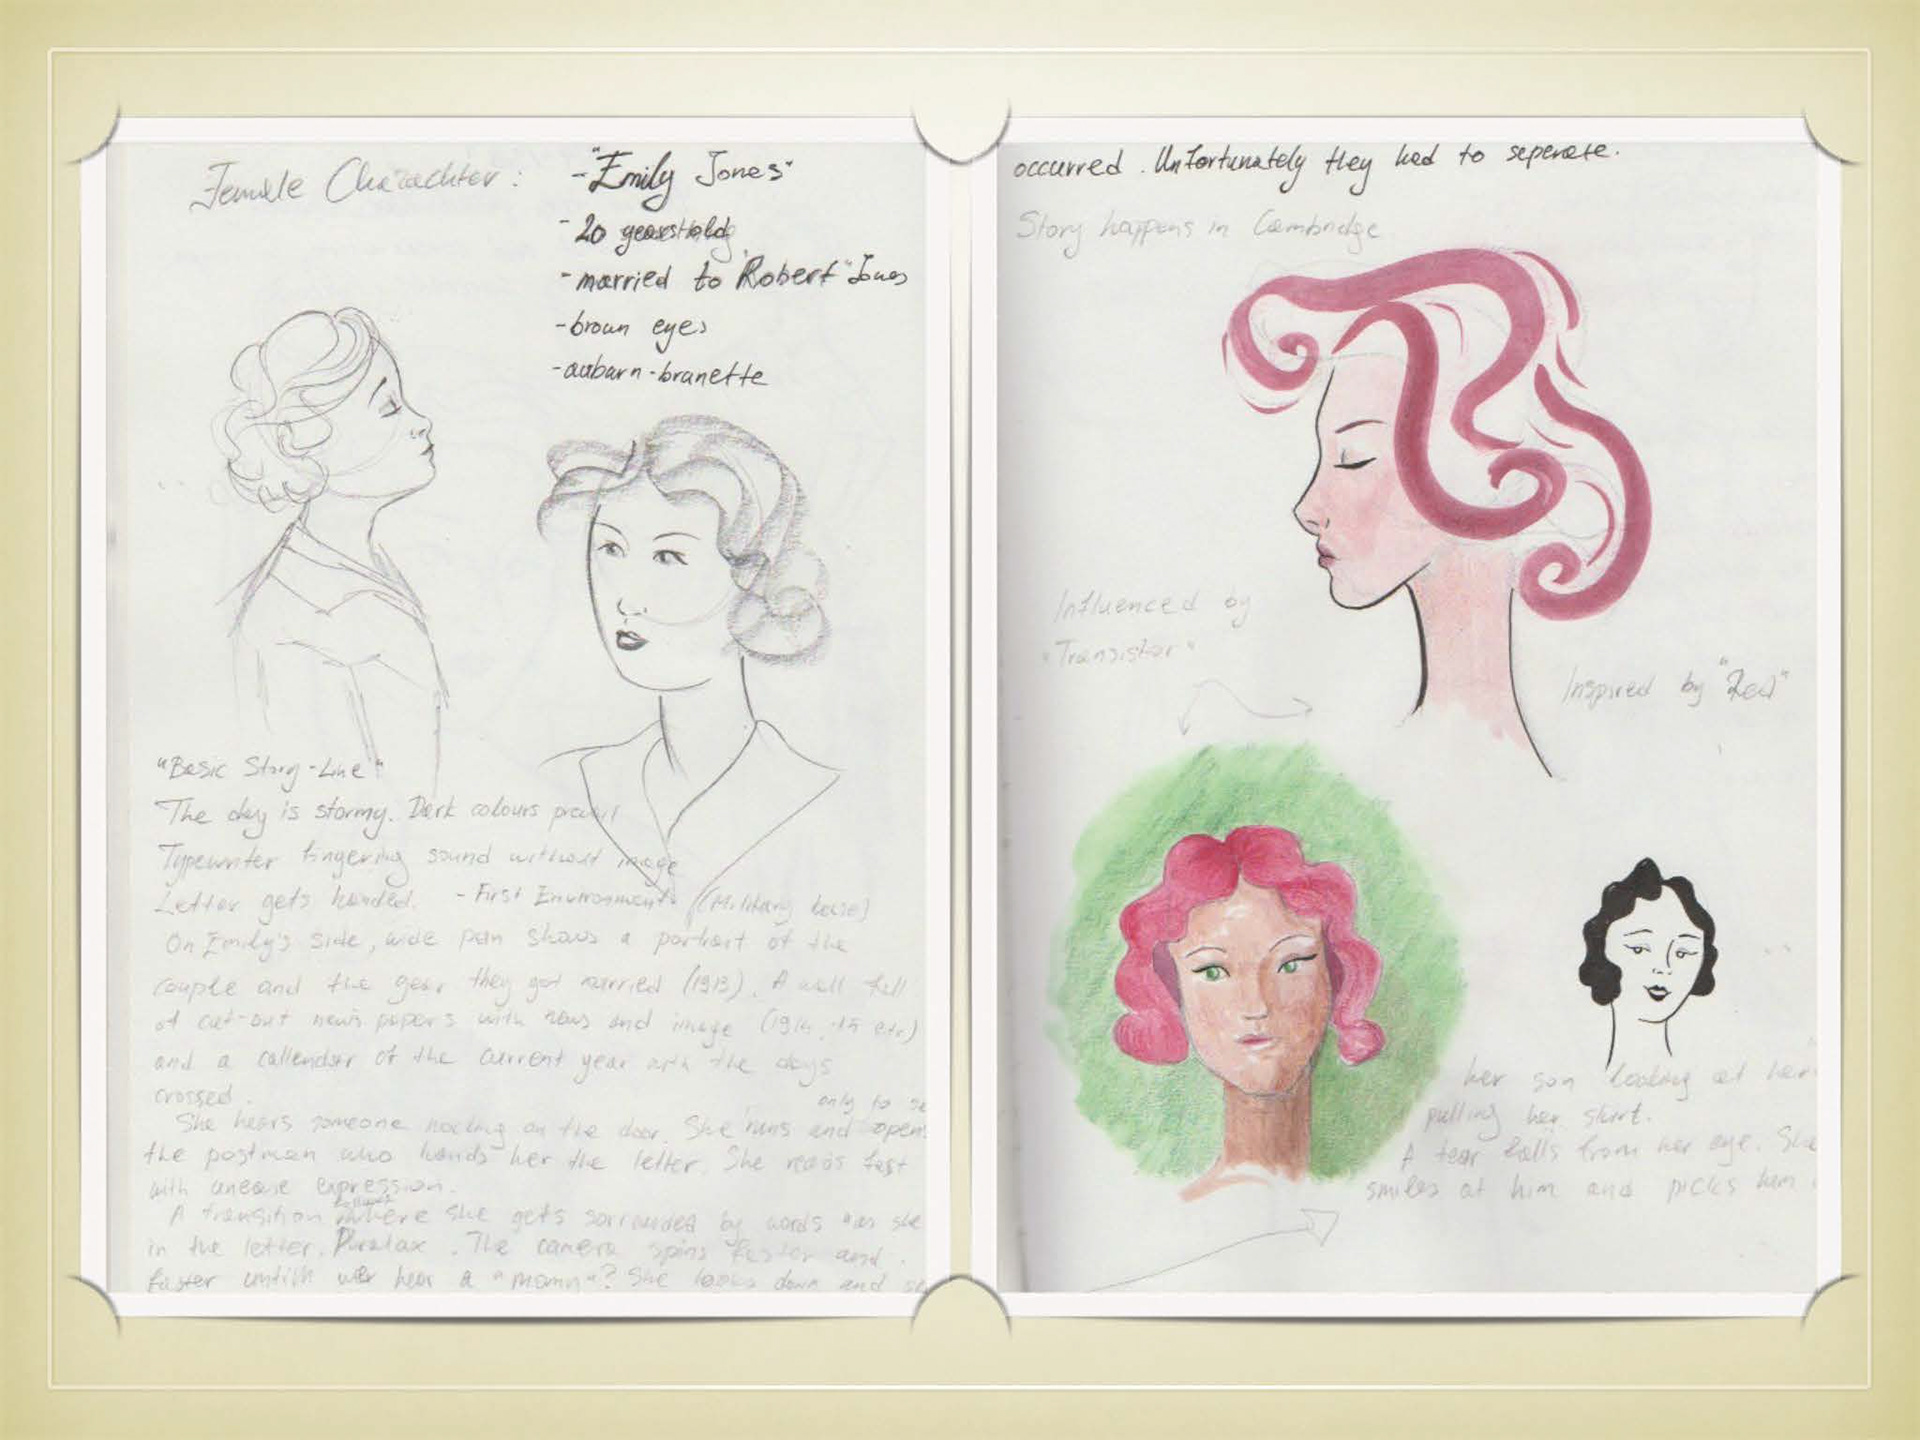 Female Charachter :
-"Emily Jones"
- 20 years old
- married to "Robert" Jones
- brown eyes
- auburn-brunette
"Basic Story-Line":
The day is stormy. Dark colours prevail
Typewriter fingering sound without image
Letter gets handed. - First Environment (Military base)
On Emily's side, wide pan shows a portrait of the
couple and the year they got married (1913). A wall full
of cut-out news papers with news and image (1914, 15 etc)
and a callendar of the current year with the days
crossed.
She hears someone nocking on the door. She runs and opens only to se
the postman who hands her the letter. She reads fast
with unease expression.
A transition where she gets sorrounded by words as she
in the letter. The camera spins faster and
faster untill we hear a "mamn"? She looks down and se
occurred. Unfortunately they had to seperate.
Story happens in Cambridge
Influenced by
"Transistor"
Inspired by "Red"
her son looking at her
pulling her skirt.
A tear falls from her eye. She
smiles at him and picks him